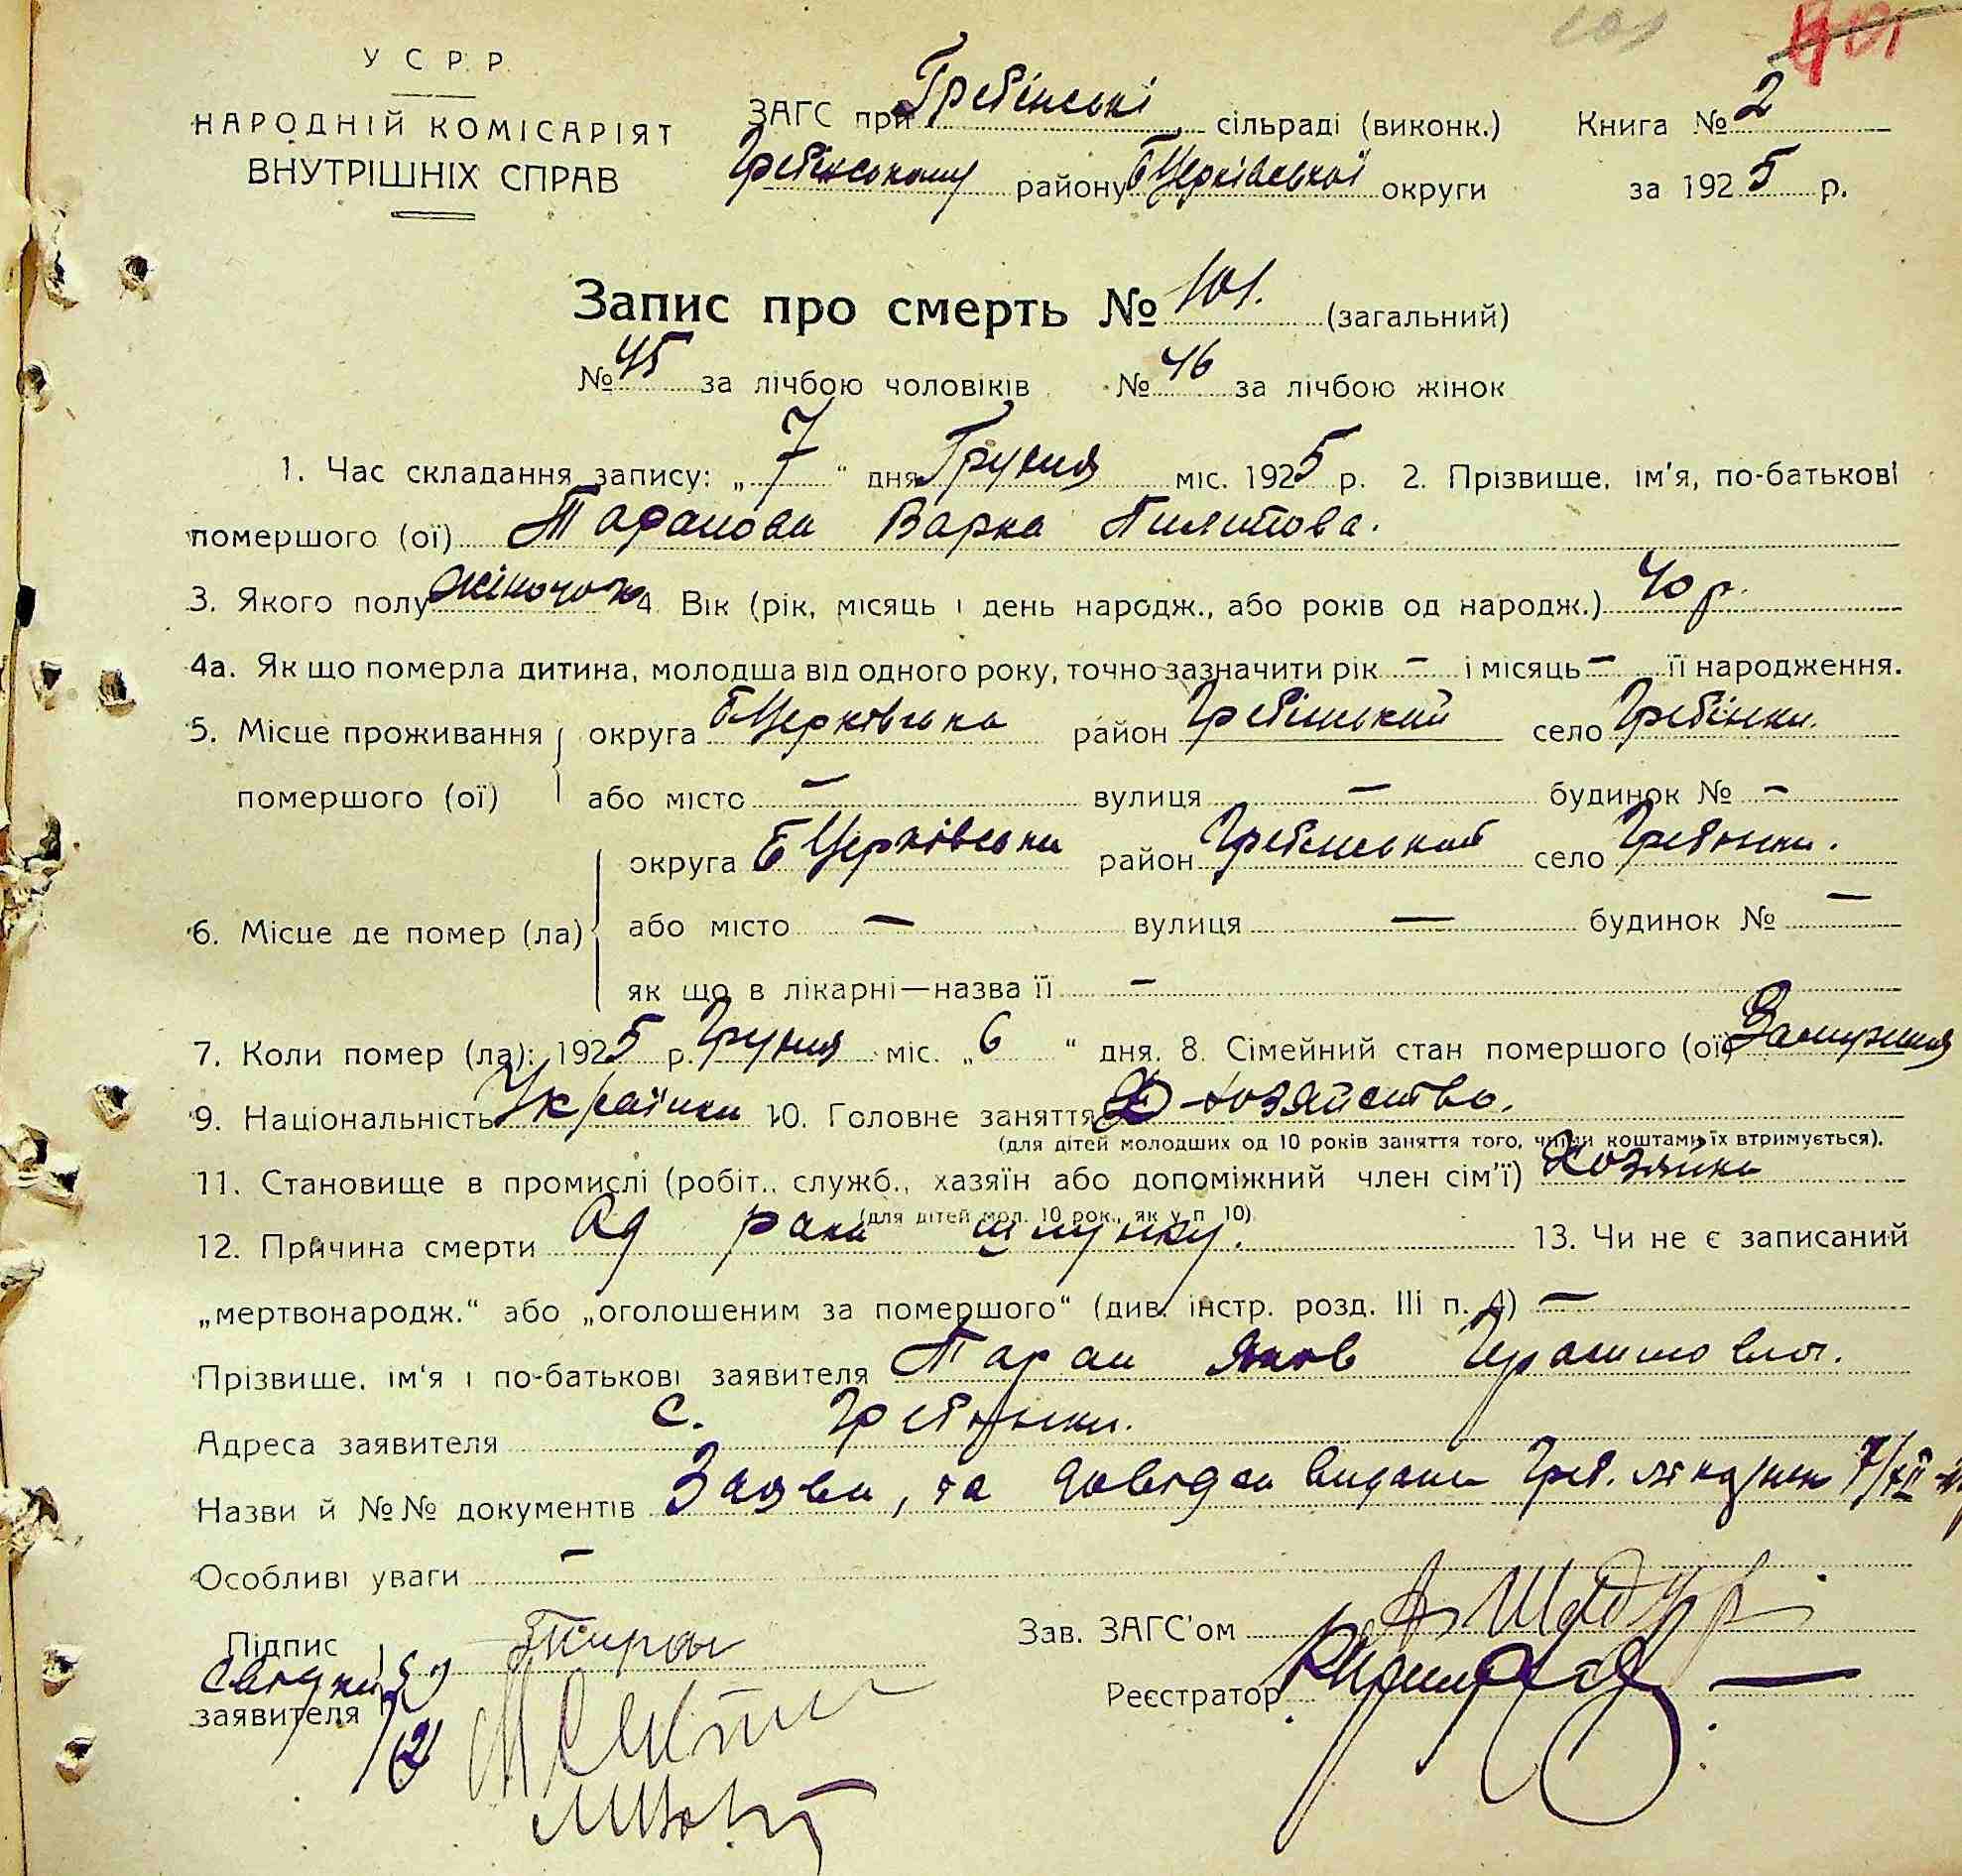 101 101
У С Р Р
НАРОДНІЙ КОМІСАРІЯТ
ВНУТРІШНІХ СПРАВ
ЗАГС при Гребінські сільраді (виконк.) Книга № 2
Гребінському району БЦерківської округи за 1925 р.
Запис про смерть № 101. (загальний)
№ 45 за лічбою чоловіків № 46 за лічбою жінок
1. Час складання запису: „7“ дня Грудня міс. 1925 р. 2. Прізвище, ім'я, по-батькові
помершого (ої) Таранова Варка Пилипова.
3. Якого полу жіночого 4. Вік (рік, місяць і день народж., або років од народж.) 40 р.
4а. Як що померла дитина, молодша від одного року, точно зазначити рік – і місяць – її народження.
5. Місце проживання округа БЦерківська район Гребінський село Гребінки.
помершого (ої) або місто – вулиця – будинок № –
округа БЦерківська район Гребінський село Гребінки.
6. Місце де помер (ла) або місто – вулиця – будинок № –
як що в лікарні—назва її –
7. Коли помер (ла): 1925 р. Грудня міс. „6“ дня. 8. Сімейний стан помершого (ої) Замужня
9. Національність Українка 10. Головне заняття хозяйство.
(для дітей молодших од 10 років заняття того, чиїми коштами їх втримується).
11. Становище в промислі (робіт., служб., хазяїн або допоміжний член сім'ї) Хозяйка
(для дітей мол. 10 рок., як у п 10)
12. Причина смерти Од рака шлунку. 13. Чи не є записаний
„мертвонародж.“ або „оголошеним за помершого“ (див. інстр. розд. III п. 4) –
Прізвище, ім'я і по-батькові заявителя Таран Яков
Адреса заявителя с. Гребінки.
Назви й №№ документів Заява, та довідка видана Греб. 7/XII
Особливі уваги –
Підпис Таран Зав. ЗАГС'ом
свідки 1)
заявителя Реєстратор
2)